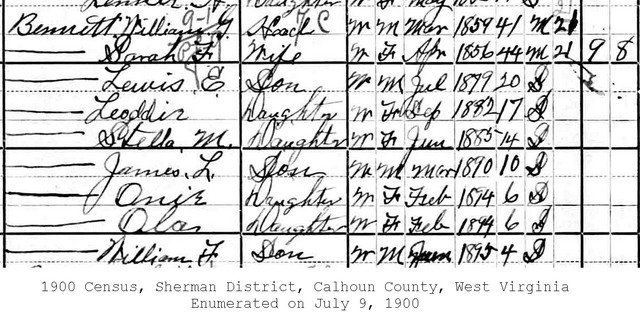 Bennett William G. Head W M Mar 1859 41 M 21
Sarah F. Wife W F Apr 1856 44 M 21 9 8
Lewis E Son W M Jul 1879 20 S
Leoddie Daughter W F Sep 1882 17 S
Stella M. Daughter W F Jun 1885 14 S
James L. Son W M Mar 1890 10 S
Onie Daughter W F Feb 1894 6 S
Olas Daughter W F Feb 1894 6 S
William F Son W M Jun 1895 4 S
1900 Census, Sherman District, Calhoun County, West Virginia
Enumerated on July 9, 1900